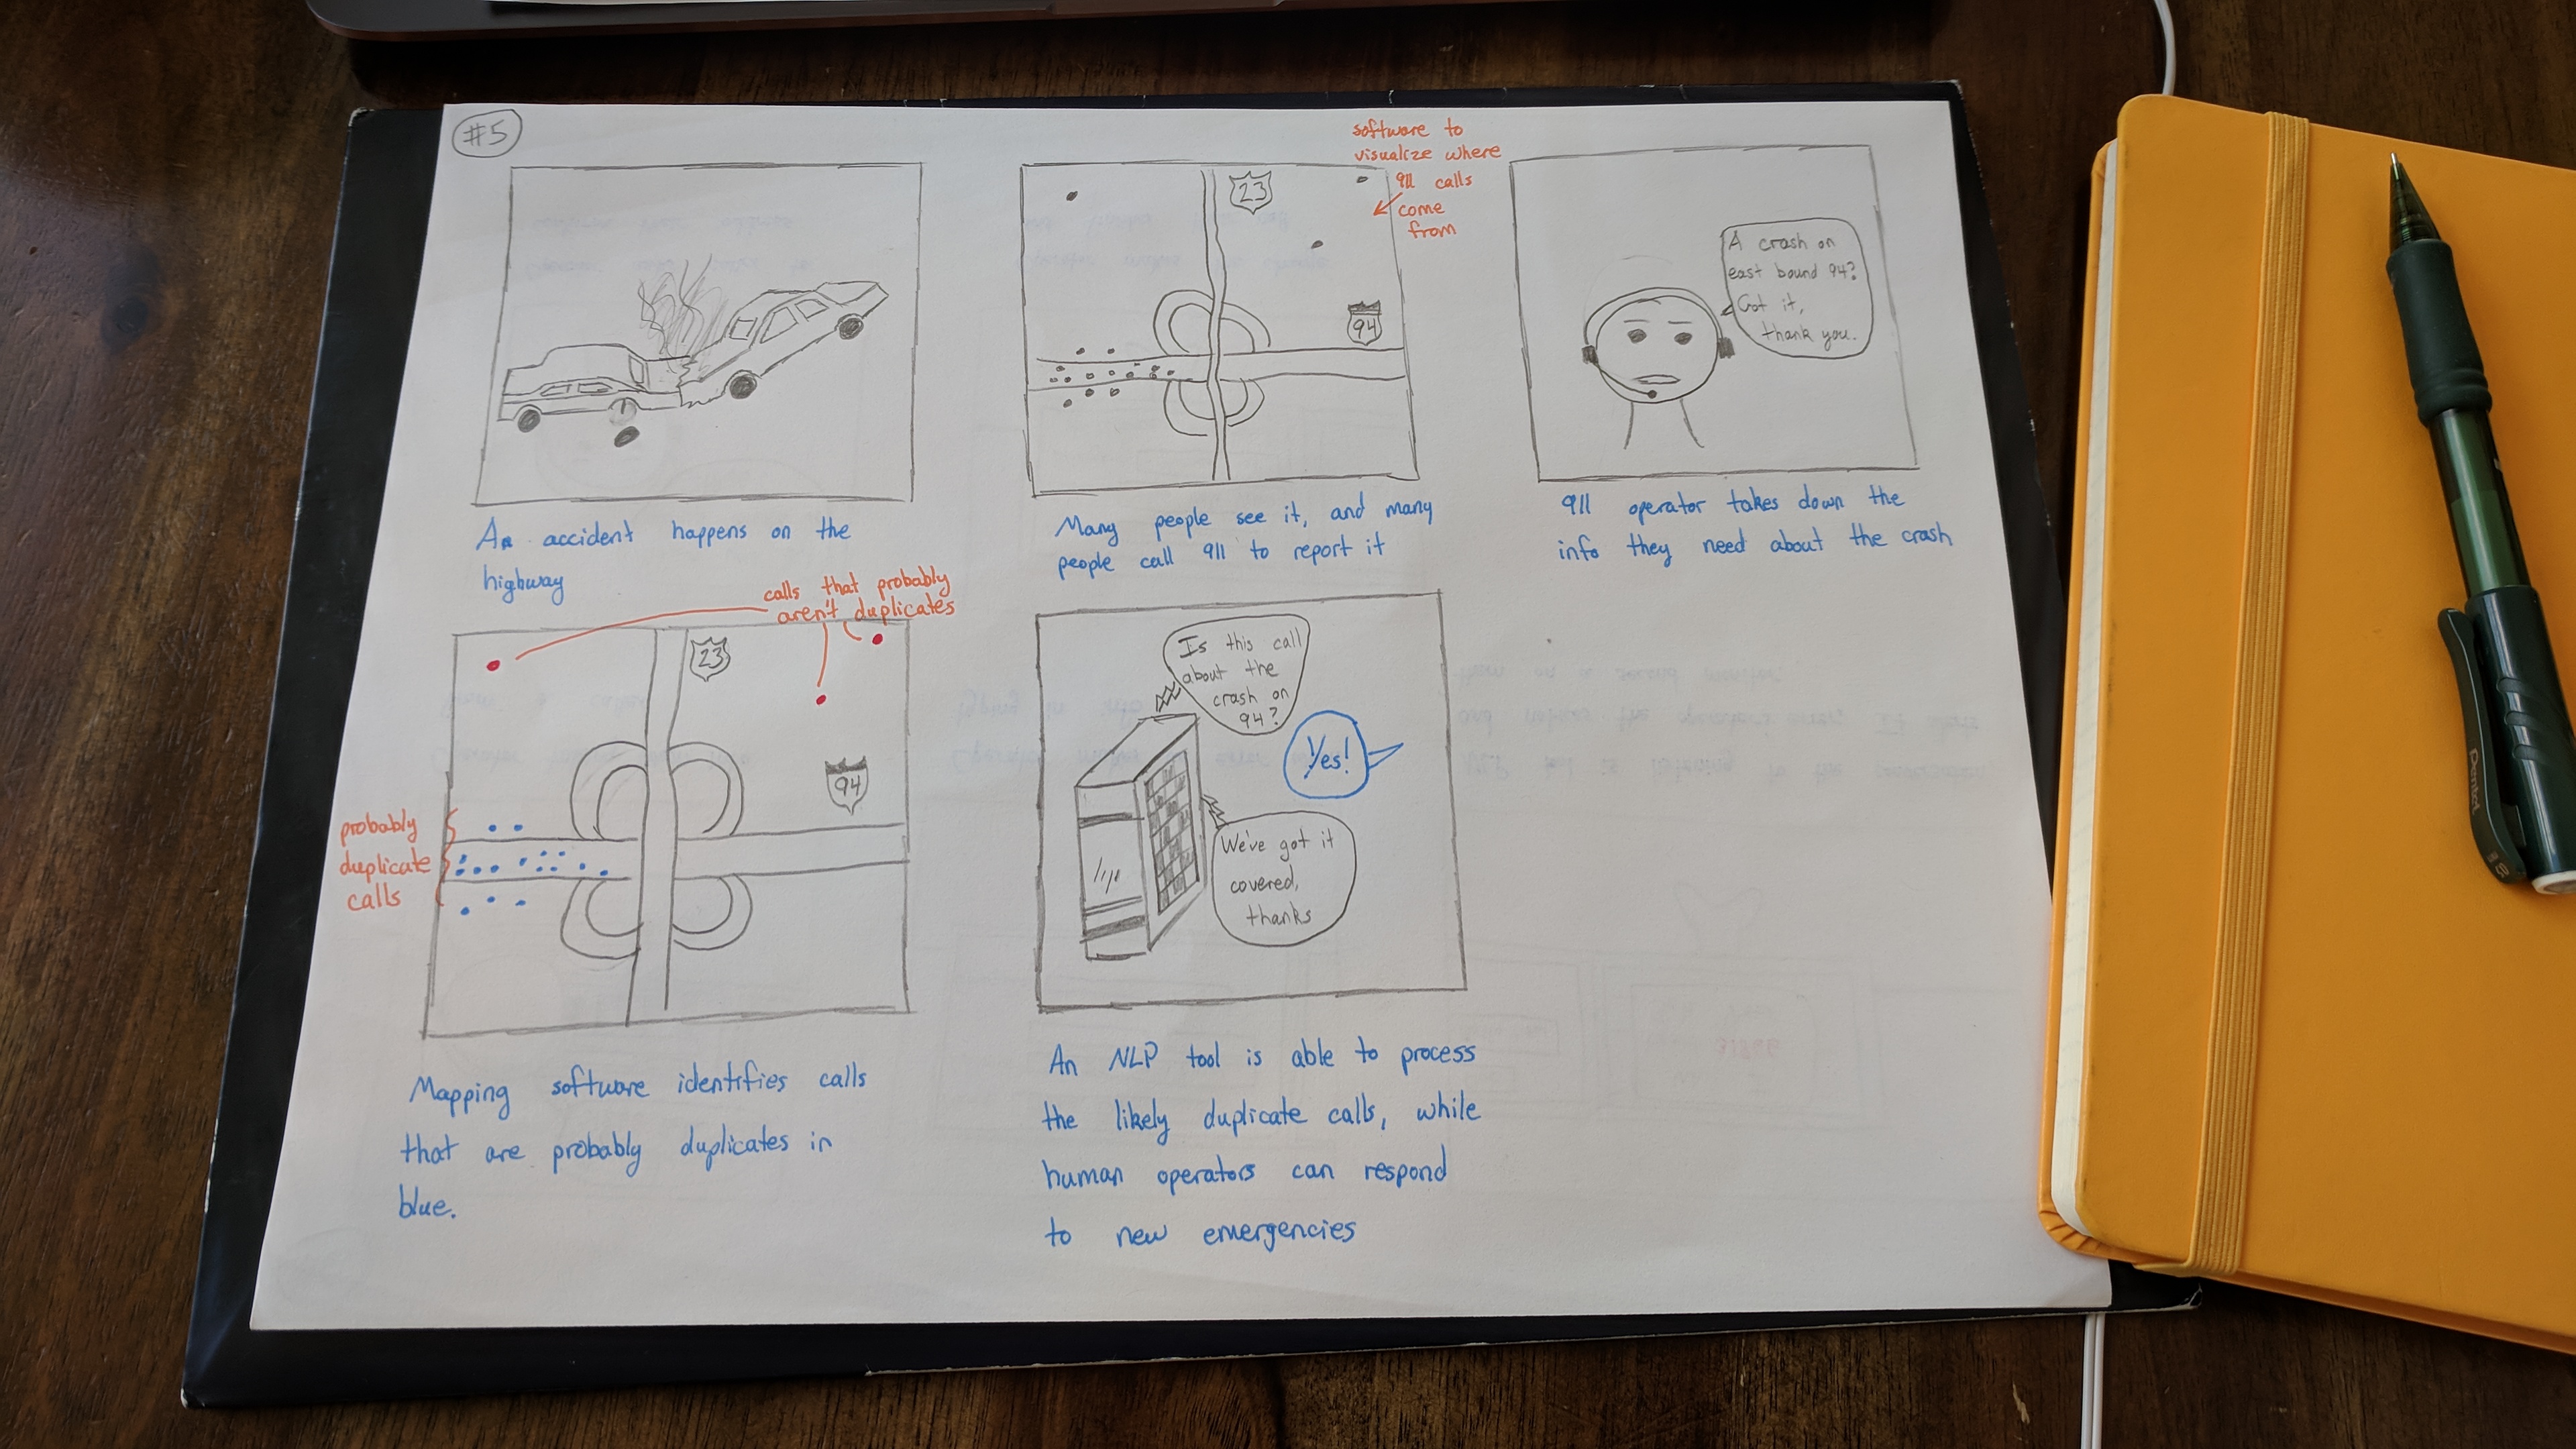 #5
An accident happens on the
highway
23
94
software to
visualize where
911 calls
come
from
Many people see it, and many
people call 911 to report it
A crash on
east bound 94?
Got it,
thank you.
911 operator takes down the
info they need about the crash
calls that probably
aren't duplicates
23
94
probably
duplicate
calls
Mapping software identifies calls
that are probably duplicates in
blue.
Is this call
about the
crash on
94?
Yes!
We've got it
covered,
thanks
An NLP tool is able to process
the likely duplicate calls, while
human operators can respond
to new emergencies
Pentel